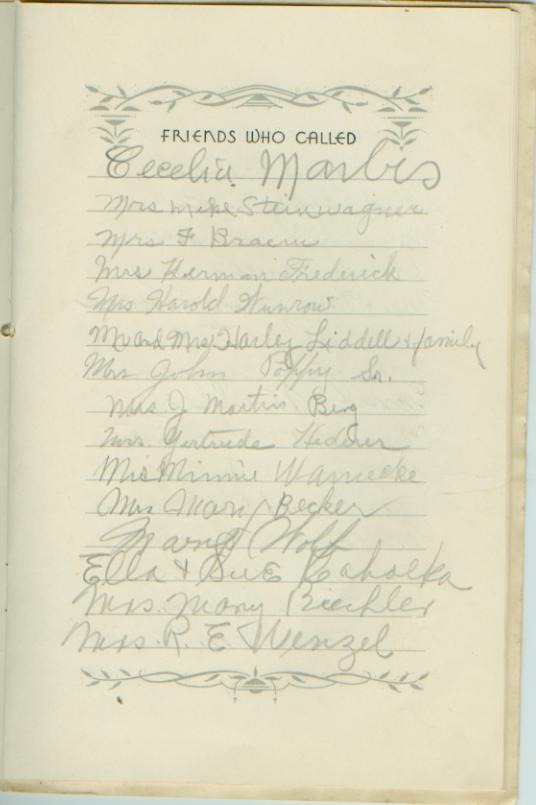 FRIENDS WHO CALLED
Cecelia Marbis
Mrs Mike Steinwagner
Mrs F Braem
Mrs Herman Frederick
Mrs Harold Wunrow
Mr and Mrs Harley Liddell & family
Mrs John Poppy Sr.
Mrs. J Martin Berg
Mrs. Gertrude Hederer
Mrs Minnie Warnecke
Mrs Mary Becker
Wolff
Ella & Sue Kaholka
Mrs. Mary Biechler
Mrs. R. E. Wenzel